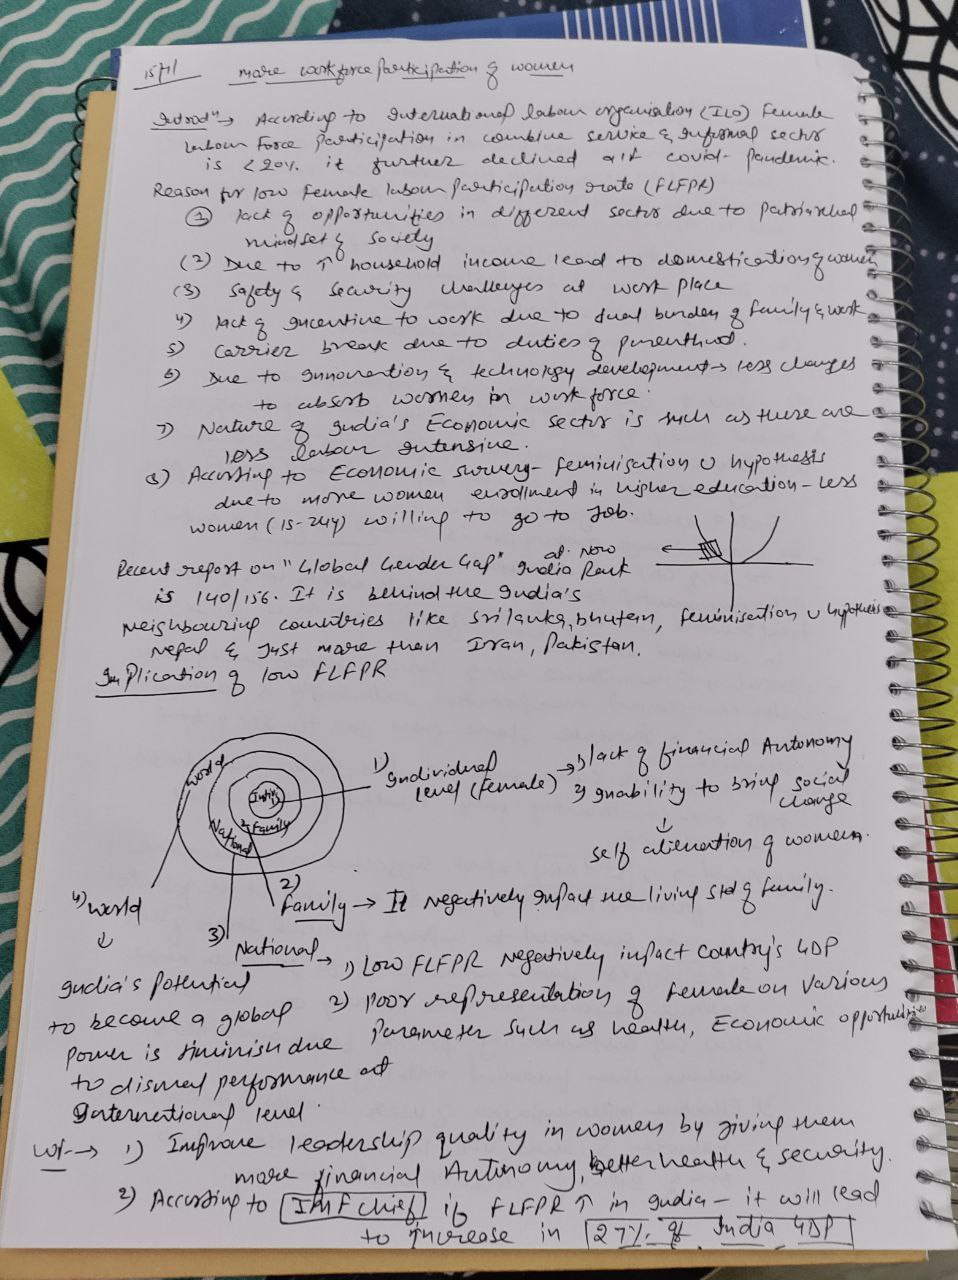 15/11 more workforce participation of women
Introdⁿ → According to International labour organisation (ILO) Female
labour Force Participation in combine service & Informal sector
is <20%. it further declined aft covid-pandemic.
Reason for low Female labour participation rate (FLFPR)
① lack of opportunities in different sector due to Patriarchal
mindset of society
(2) Due to ↑ household income lead to domestication of women
(3) Safety & security challenges at work place
4) lack of incentive to work due to dual burden of family & work
5) Carrier break due to duties of parenthood.
6) Due to Innovation & technology development → less changes
to absorb women in work force.
7) Nature of India's Economic sector is such as these are
less labour intensive.
8) According to Economic survey - feminisation U hypothesis
due to more women enrollment in higher education - less
women (15-24y) willing to go to Job.
Recent report on "Global Gender Gap" at. Now
India Rank
is 140/156. It is behind the India's
neighbouring countries like Srilanka, bhutan,
Nepal & Just more than Iran, Pakistan.
feminisation U hypothesis
Implication of low FLFPR
World
Indiv.
Family
National
1) Individual
level (female) → 1) lack of financial Autonomy
2) Inability to bring social
change
↓
self alienation of women.
2) Family → It negatively Impact the living std of family.
3) National → 1) Low FLFPR Negatively inpact Country's GDP
2) poor representation of female on various
Parameter such as health, Economic opportunities
4) world
↓
India's potential
to become a global
power is diminish due
to dismal performance at
International level.
Wf → 1) Improve leadership quality in women by giving them
more financial Autonomy, better health & security.
2) According to IMF chief if FLFPR ↑ in India - it will lead
to increase in 27% of India GDP